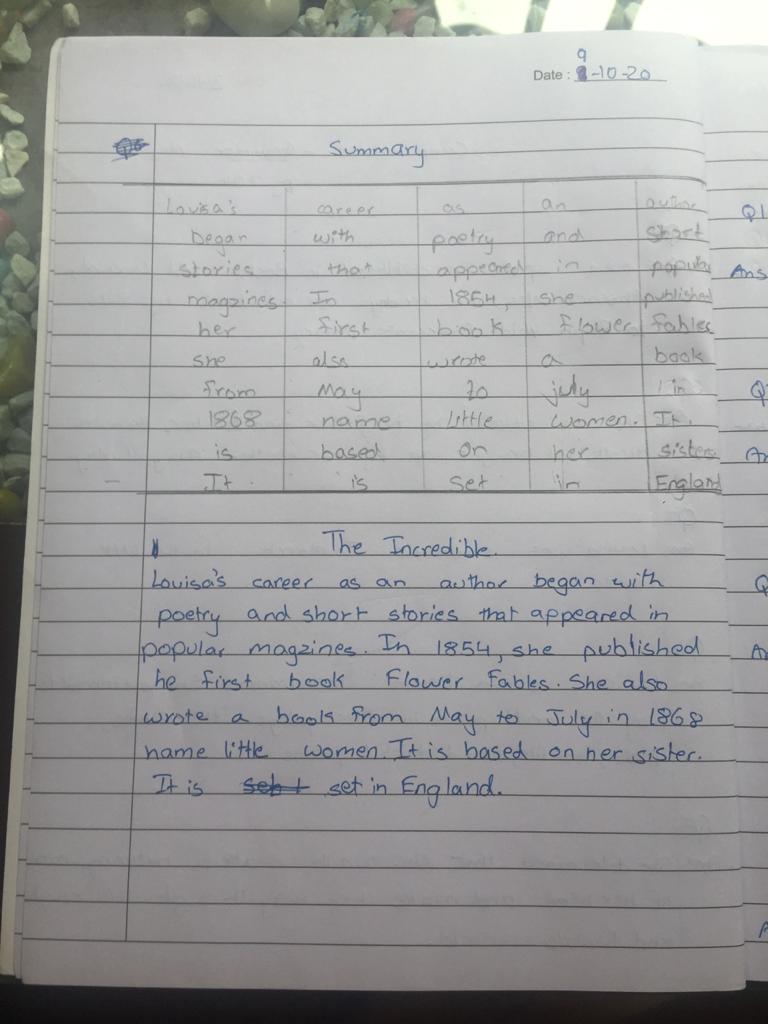 9
Date : 8-10-20
Summary
Louisa's career as an author
began with poetry and short
stories that appeared in popular
magzines. In 1854, she published
her first book flower fables
she also wrote a book
from May to july in
1868 name little women. It
is based on her sister.
It is set in England
The Incredible.
Louisa's career as an author began with
poetry and short stories that appeared in
popular magzines. In 1854, she published
he first book Flower Fables. She also
wrote a book from May to July in 1868
name little women. It is based on her sister.
It is set in England.
Q1
Ans
Q
An
Q
A
A